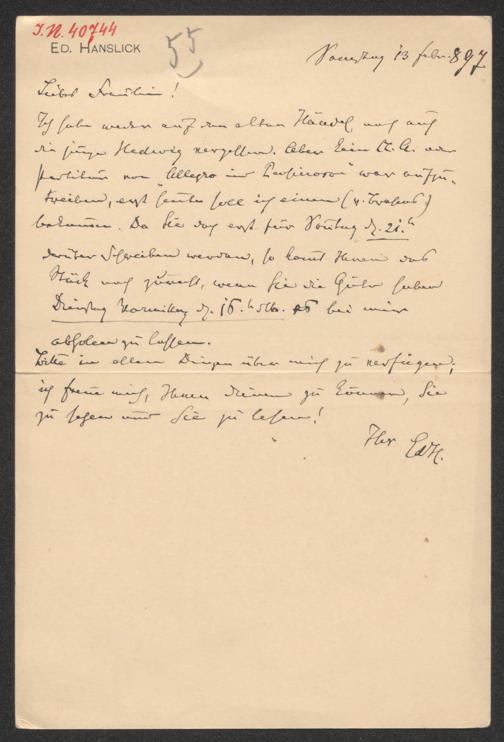 I.N. 40744
ED. HANSLICK
55
Samstag 13 Febr. 897
Liebes Fräulein!
Ich habe weder auf den alten Händel noch auf
die junge Hedwig vergessen. Aber kein K. A. oder
Partitur von "Allegro und Pensieroso" war aufzu-
treiben, erst heute soll ich einen (v. )
bekommen. Da Sie doch erst für Sonntag d. 21.
darüber schreiben werden, so kommt Ihnen das
Stück noch zurecht, wenn Sie die Güte haben
Dienstag Vormittag d. 16. bei mir
abholen zu lassen.
Bitte in allen Dingen über mich zu verfügen;
ich freue mich, Ihnen dienen zu können, Sie
zu sehen und Sie zu lesen!
Ihr
EdH.